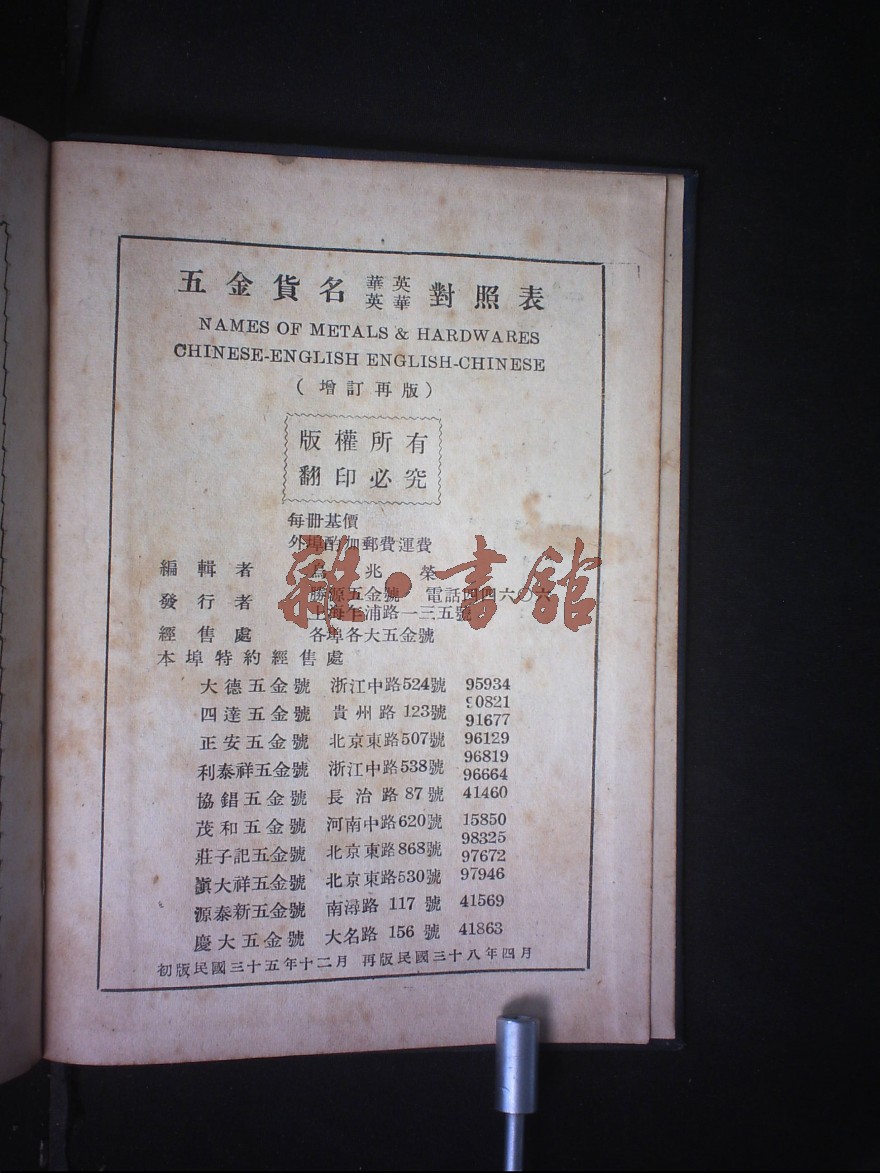 五金貨名 華英 英華 對照表
NAMES OF METALS & HARDWARES
CHINESE-ENGLISH ENGLISH-CHINESE
(增訂再版)
版權所有
翻印必究
每册基價
外埠酌加郵費運費
編輯者 兆榮
發行者 勝源五金號 電話四四六〇六
上海乍浦路一三五號
經售處 各埠各大五金號
本埠特約經售處
大德五金號 浙江中路524號 95934
四達五金號 貴州路123號 90821 91677
正安五金號 北京東路507號 96129
利泰祥五金號 浙江中路538號 96819 96664
協錩五金號 長治路87號 41460
茂和五金號 河南中路620號 15850
莊子記五金號 北京東路868號 98325 97672
滇大祥五金號 北京東路530號 97946
源泰新五金號 南潯路117號 41569
慶大五金號 大名路156號 41863
初版民國三十五年十二月 再版民國三十八年四月
雜·書館